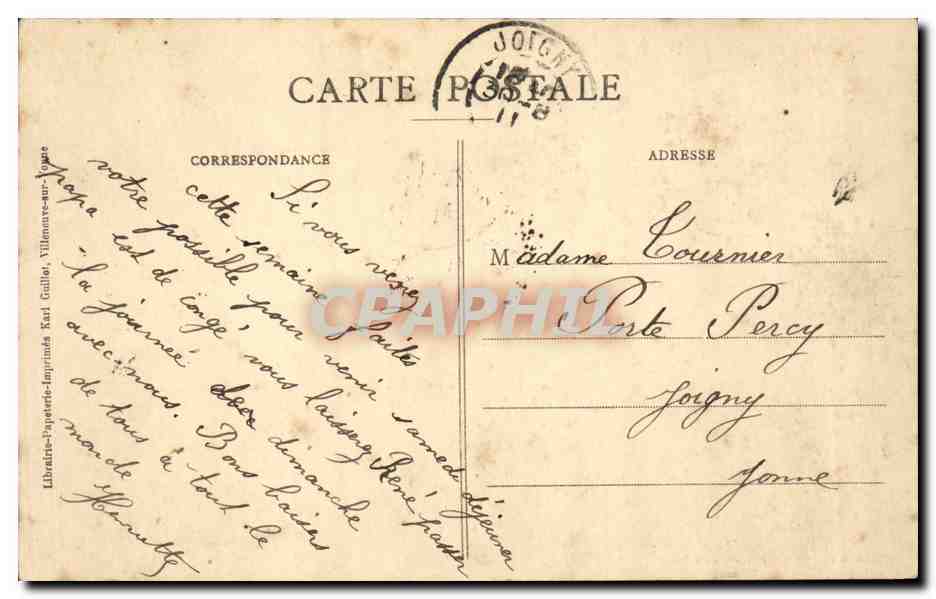 JOIGNY
CARTE POSTALE
CORRESPONDANCE
ADRESSE
Si vous venez
cette semaine faites
votre possible pour venir samedi déjeuner
papa est de congé, vous laisserez René passer
la journée dimanche
avec nous. Bons baisers
de tous à tout le
monde
Madame Tournier
Porte Percy
Joigny
Yonne
Librairie-Papeterie-Imprimés Karl Guillot, Villeneuve-sur-Yonne
CPAPHIL